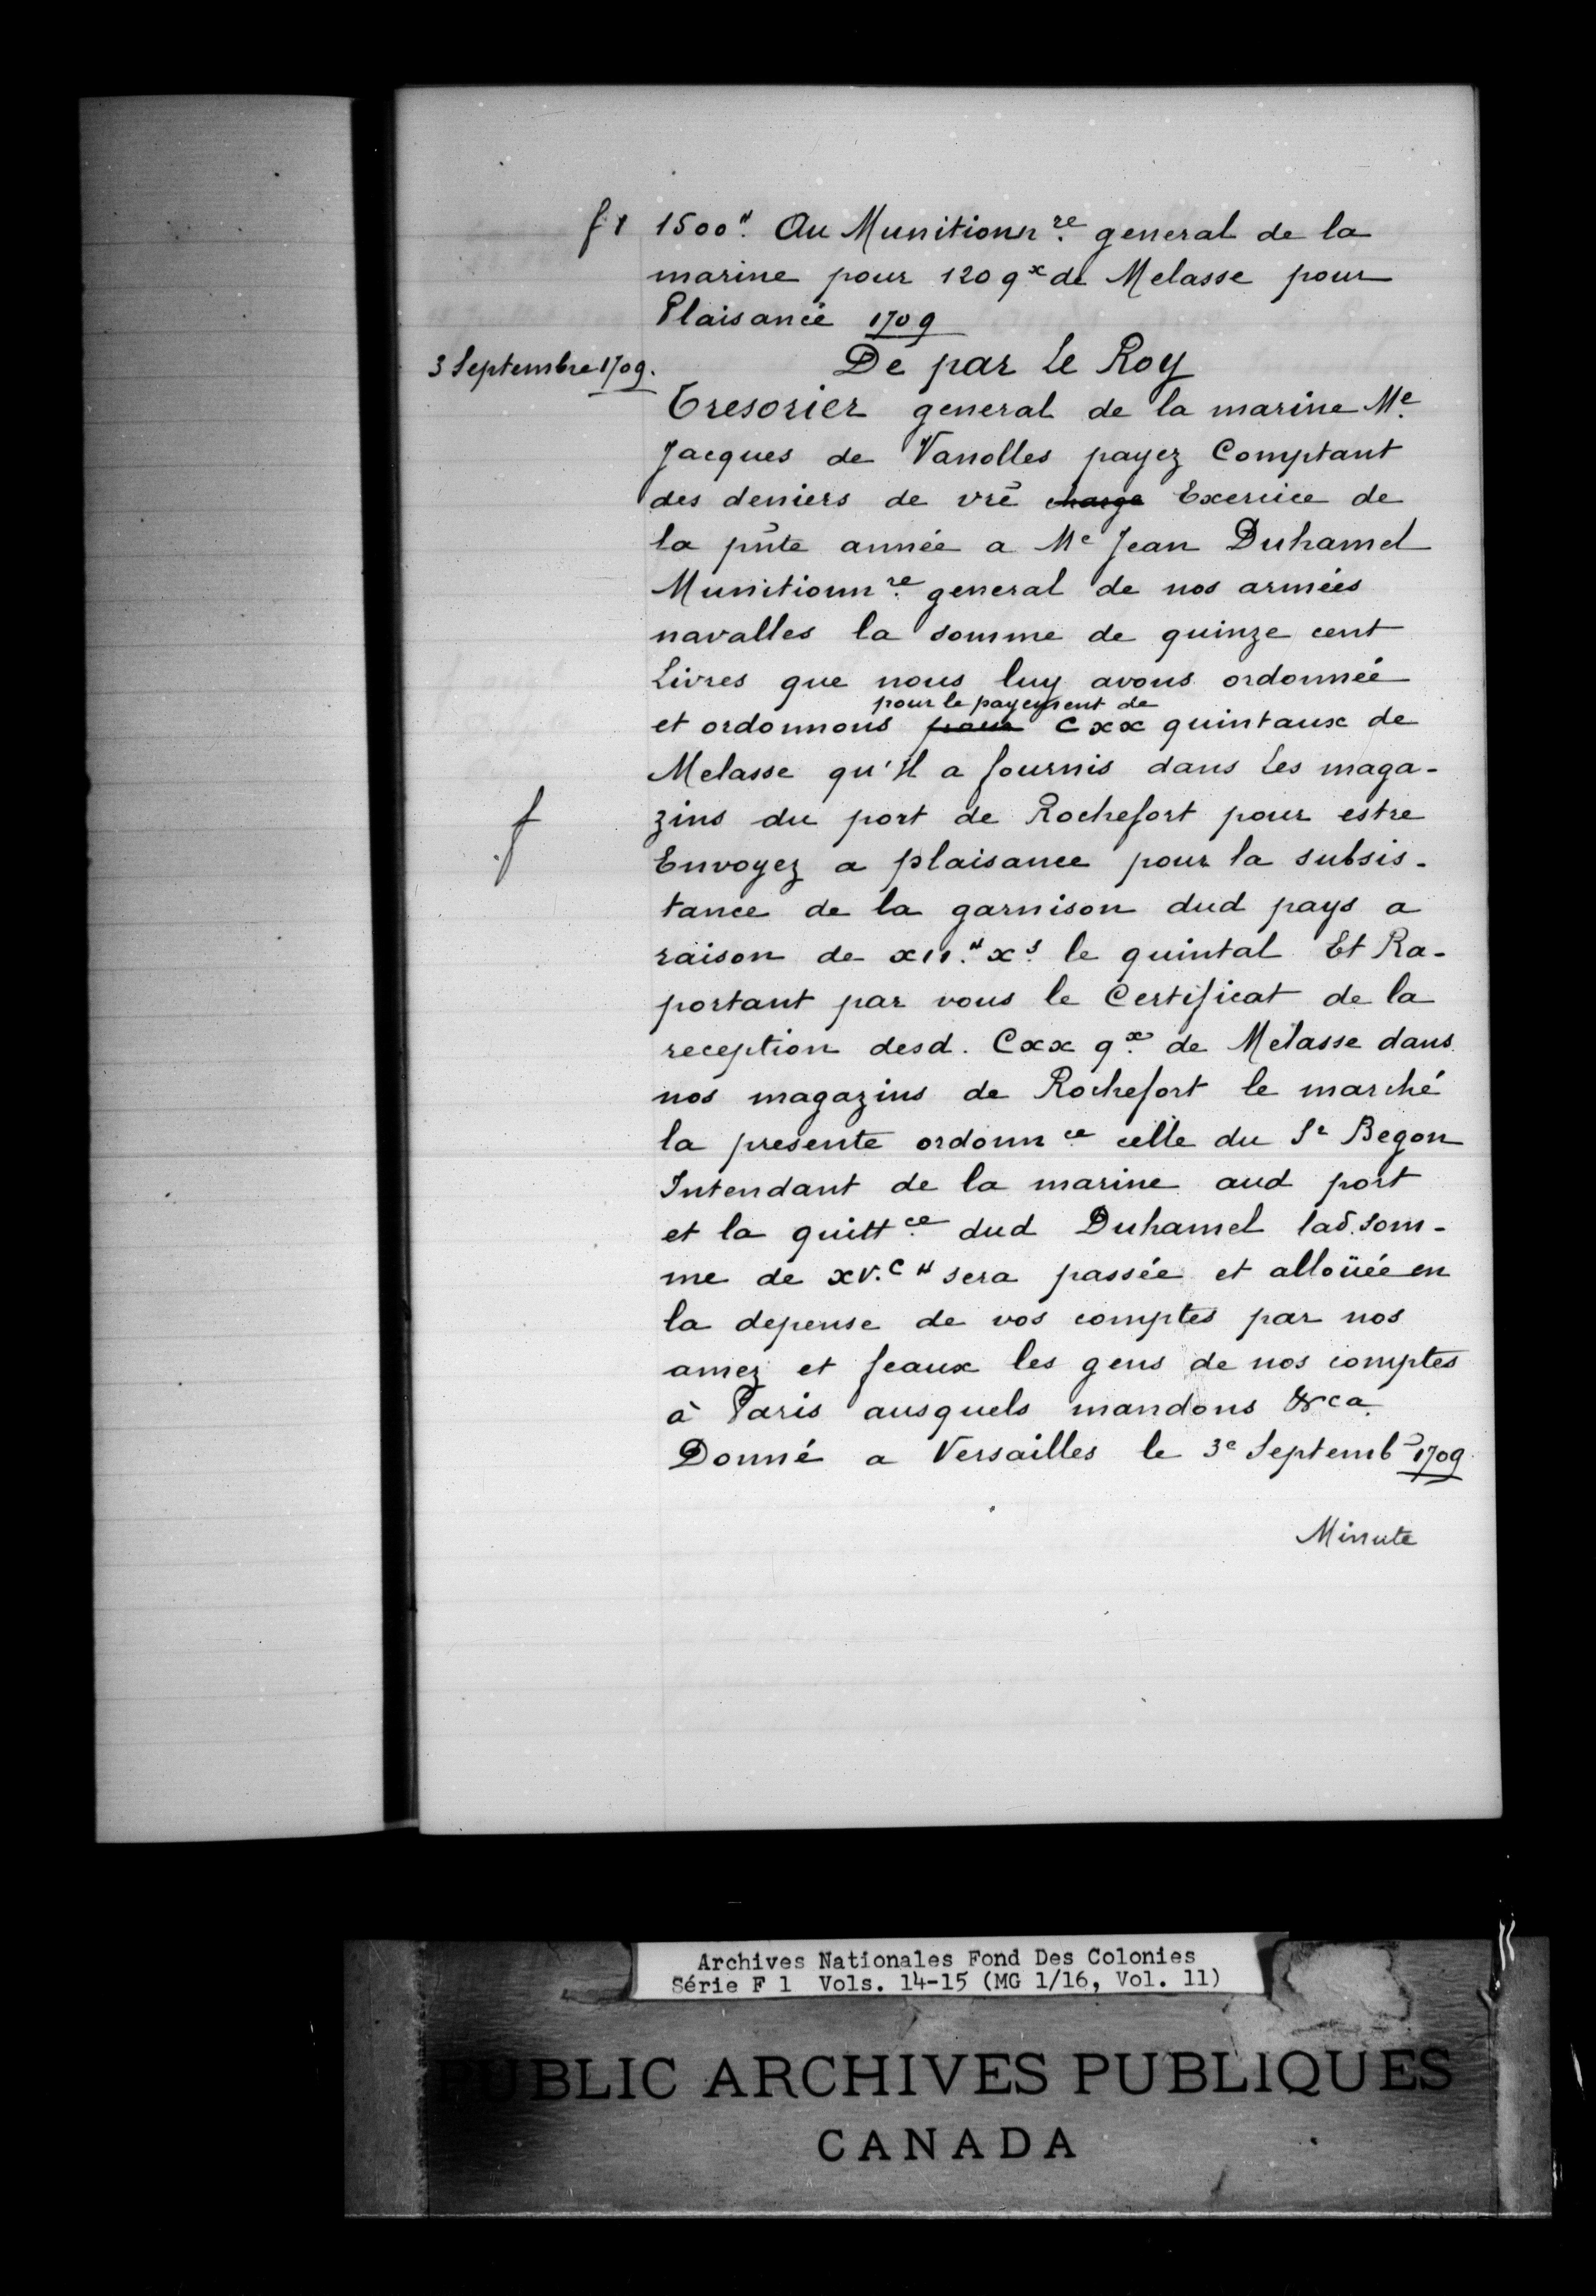 f 1 1500ᵗᵗ. Au Munitionnʳᵉ general de la
marine pour 120 qˣ de Melasse pour
Plaisance 1709
3 Septembre 1709.
De par Le Roy
Tresorier general de la marine Mᵉ
Jacques de Vanolles payez Comptant
des deniers de vrē charge Exercice de
la pn̄te année a Mᵉ Jean Duhamel
Munitionnʳᵉ general de nos armées
navalles la somme de quinze cent
Livres que nous luy avons ordonnée
pour le payement de
et ordonnons pour Cxx quintaux de
Melasse qu'il a fournis dans Les maga-
f
zins du port de Rochefort pour estre
Envoyez a plaisance pour la subsis-
tance de la garnison dud pays a
raison de xii.ᵗᵗ xˢ le quintal Et Ra-
portant par vous le Certificat de la
reception desd. Cxx qˣ de Melasse dans
nos magazins de Rochefort le marché
la presente ordonnᶜᵉ celle du Sʳ Begon
Intendant de la marine aud port
et la quittᶜᵉ dud Duhamel lad. som-
me de xv.ᶜ ᵗᵗ sera passée et alloüée en
la depense de vos comptes par nos
amez et feaux les gens de nos comptes
à Paris ausquels mandons &ca
Donné a Versailles le 3ᵉ Septembʳᵉ 1709
Minute
Archives Nationales Fond Des Colonies
Série F 1 Vols. 14-15 (MG 1/16, Vol. 11)
PUBLIC ARCHIVES PUBLIQUES
CANADA